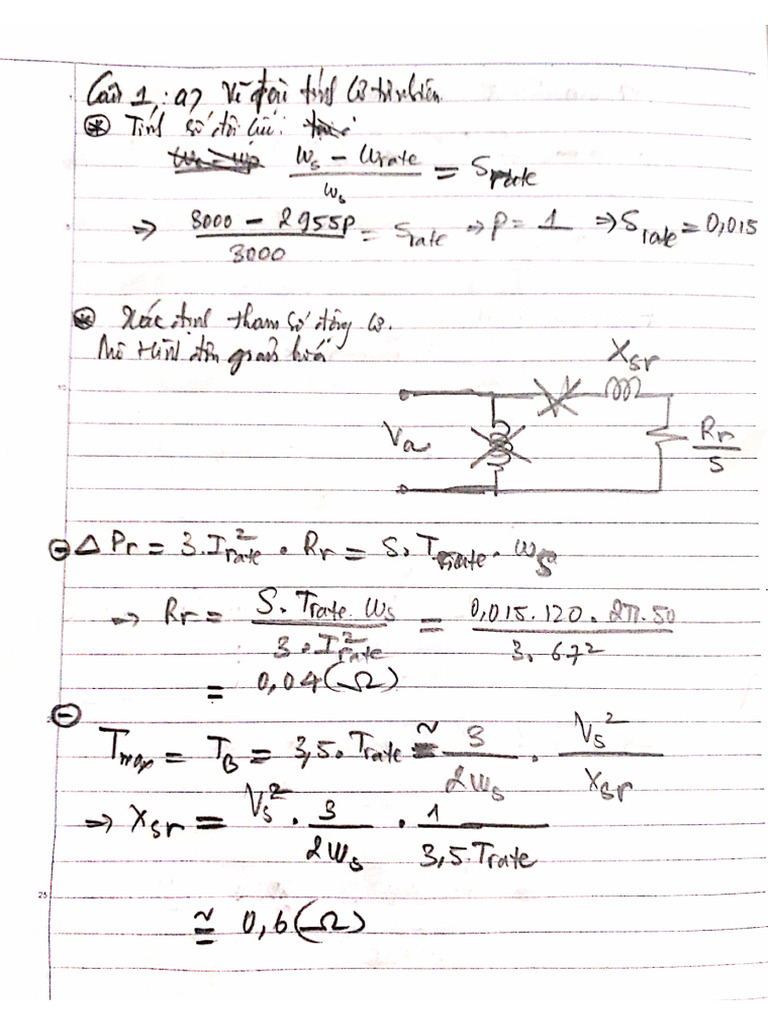 Câu 1: a) Vẽ đặc tính cơ tự nhiên.
⊛ Tính số đôi cực:
(ω_s − ω_rate) / ω_s = S_rate
⇒ (3000 − 2955p) / 3000 = S_rate ⇒ p = 1 ⇒ S_rate = 0,015
⊛ Xác định tham số động cơ.
Mô hình đơn giản hoá
X_sr
V_a
R_r / s
⊖ Δ P_r = 3.I_rate^2 . R_r = S. T_rate . ω_s
⇒ R_r = (S. T_rate ω_s) / (3 . I_rate^2) = (0,015.120. 2π.50) / (3. 67^2)
= 0,04 (Ω)
⊖
T_max = T_B = 3,5. T_rate ≅ 3 / (2ω_s) . V_s^2 / X_sr
⇒ X_sr = V_s^2 . 3 / (2ω_s) . 1 / (3,5.T_rate)
≅ 0,6 (Ω)